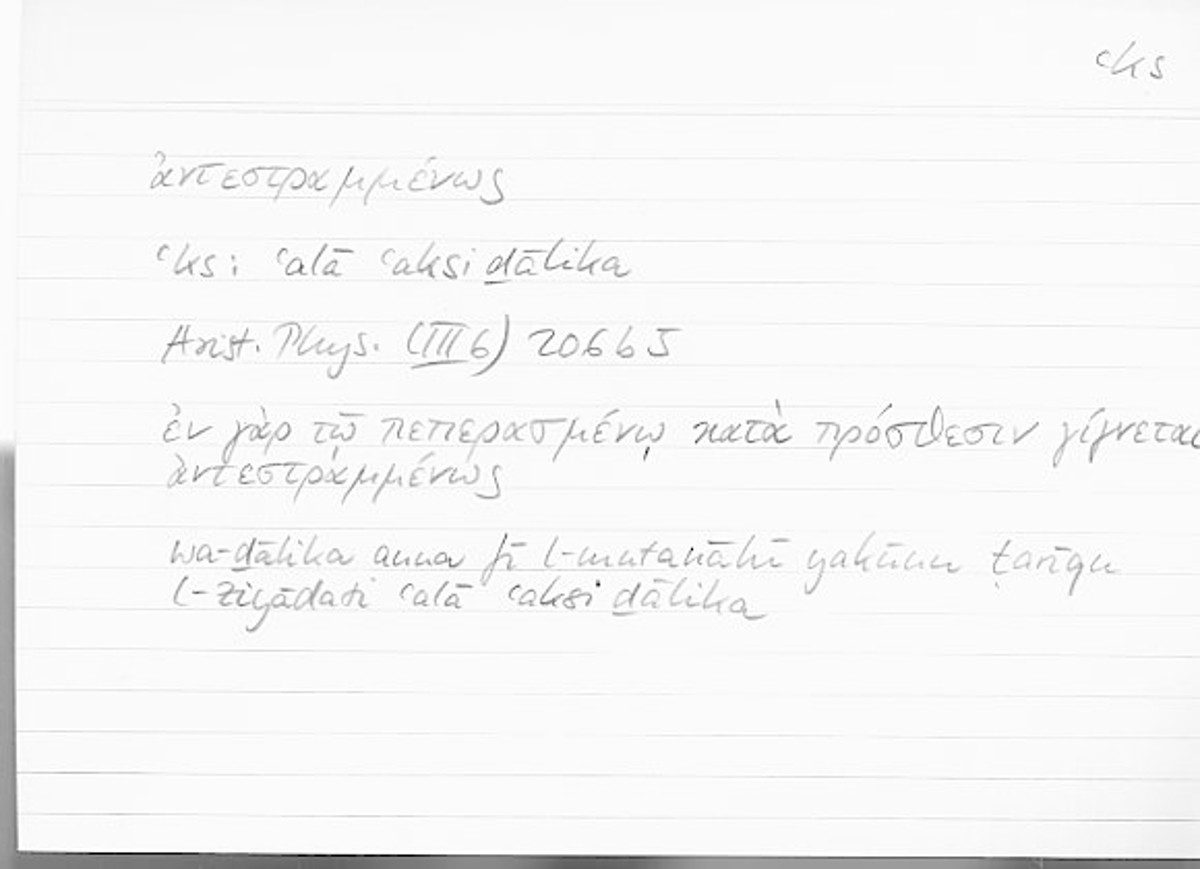 ʿks
ἀντεστραμμένως
ʿks: ʿalā ʿaksi ḏālika
Arist. Phys. (III 6) 206b5
ἐν γὰρ τῷ πεπερασμένῳ κατὰ πρόσθεσιν γίγνεται
ἀντεστραμμένως
wa-ḏālika anna fī l-mutanāhī yakūnu ṭarīqu
l-ziyādati ʿalā ʿaksi ḏālika